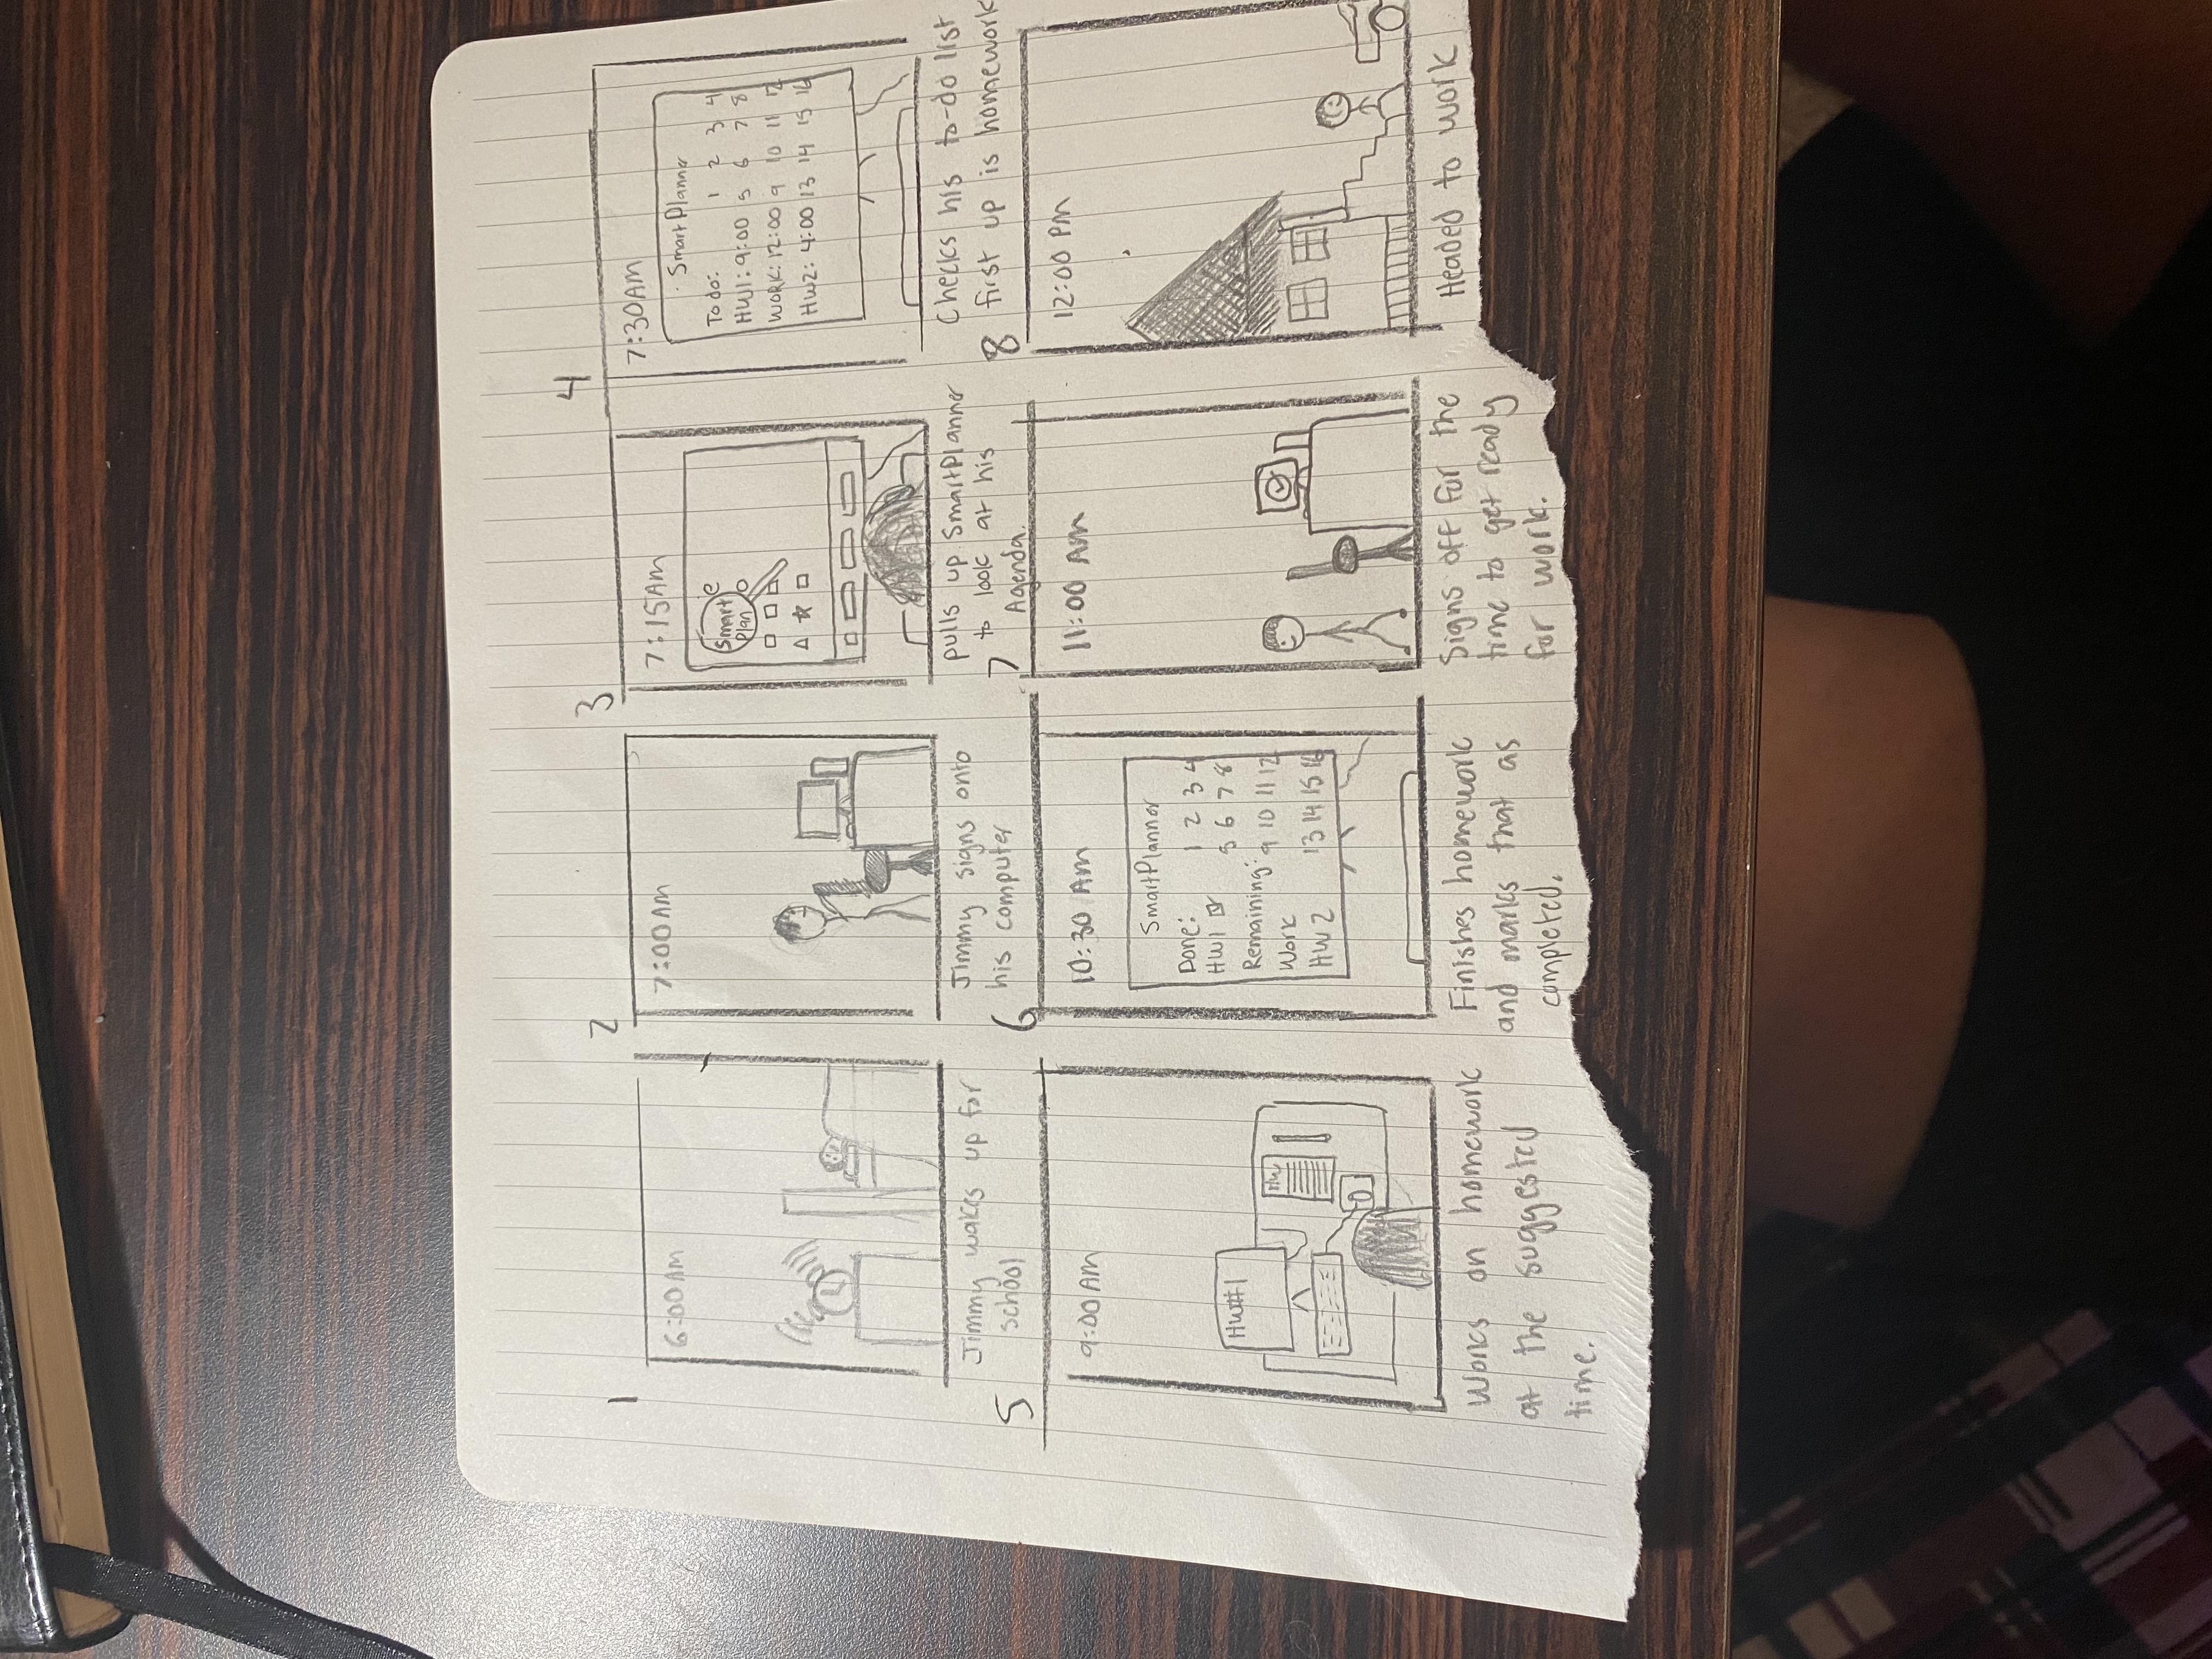 1
6:00 AM
Jimmy wakes up for
school
2
7:00 AM
Jimmy signs onto
his computer
3
7:15AM
Smart
Plan
e
pulls up SmartPlanner
to look at his
Agenda.
4
7:30AM
SmartPlanner
To do: 1 2 3 4
HW1: 9:00 5 6 7 8
WORK: 12:00 9 10 11 12
HW2: 4:00 13 14 15 16
Checks his to-do list
first up is homework
5
9:00 AM
HW#1
HW
Works on homework
at the suggested
time.
6
10:30 AM
SmartPlanner
Done: 1 2 3 4
HW1 ☑ 5 6 7 8
Remaining: 9 10 11 12
Work
HW 2 13 14 15 16
Finishes homework
and marks that as
completed.
7
11:00 AM
Signs off for the
time to get ready
for work.
8
12:00 PM
Headed to work